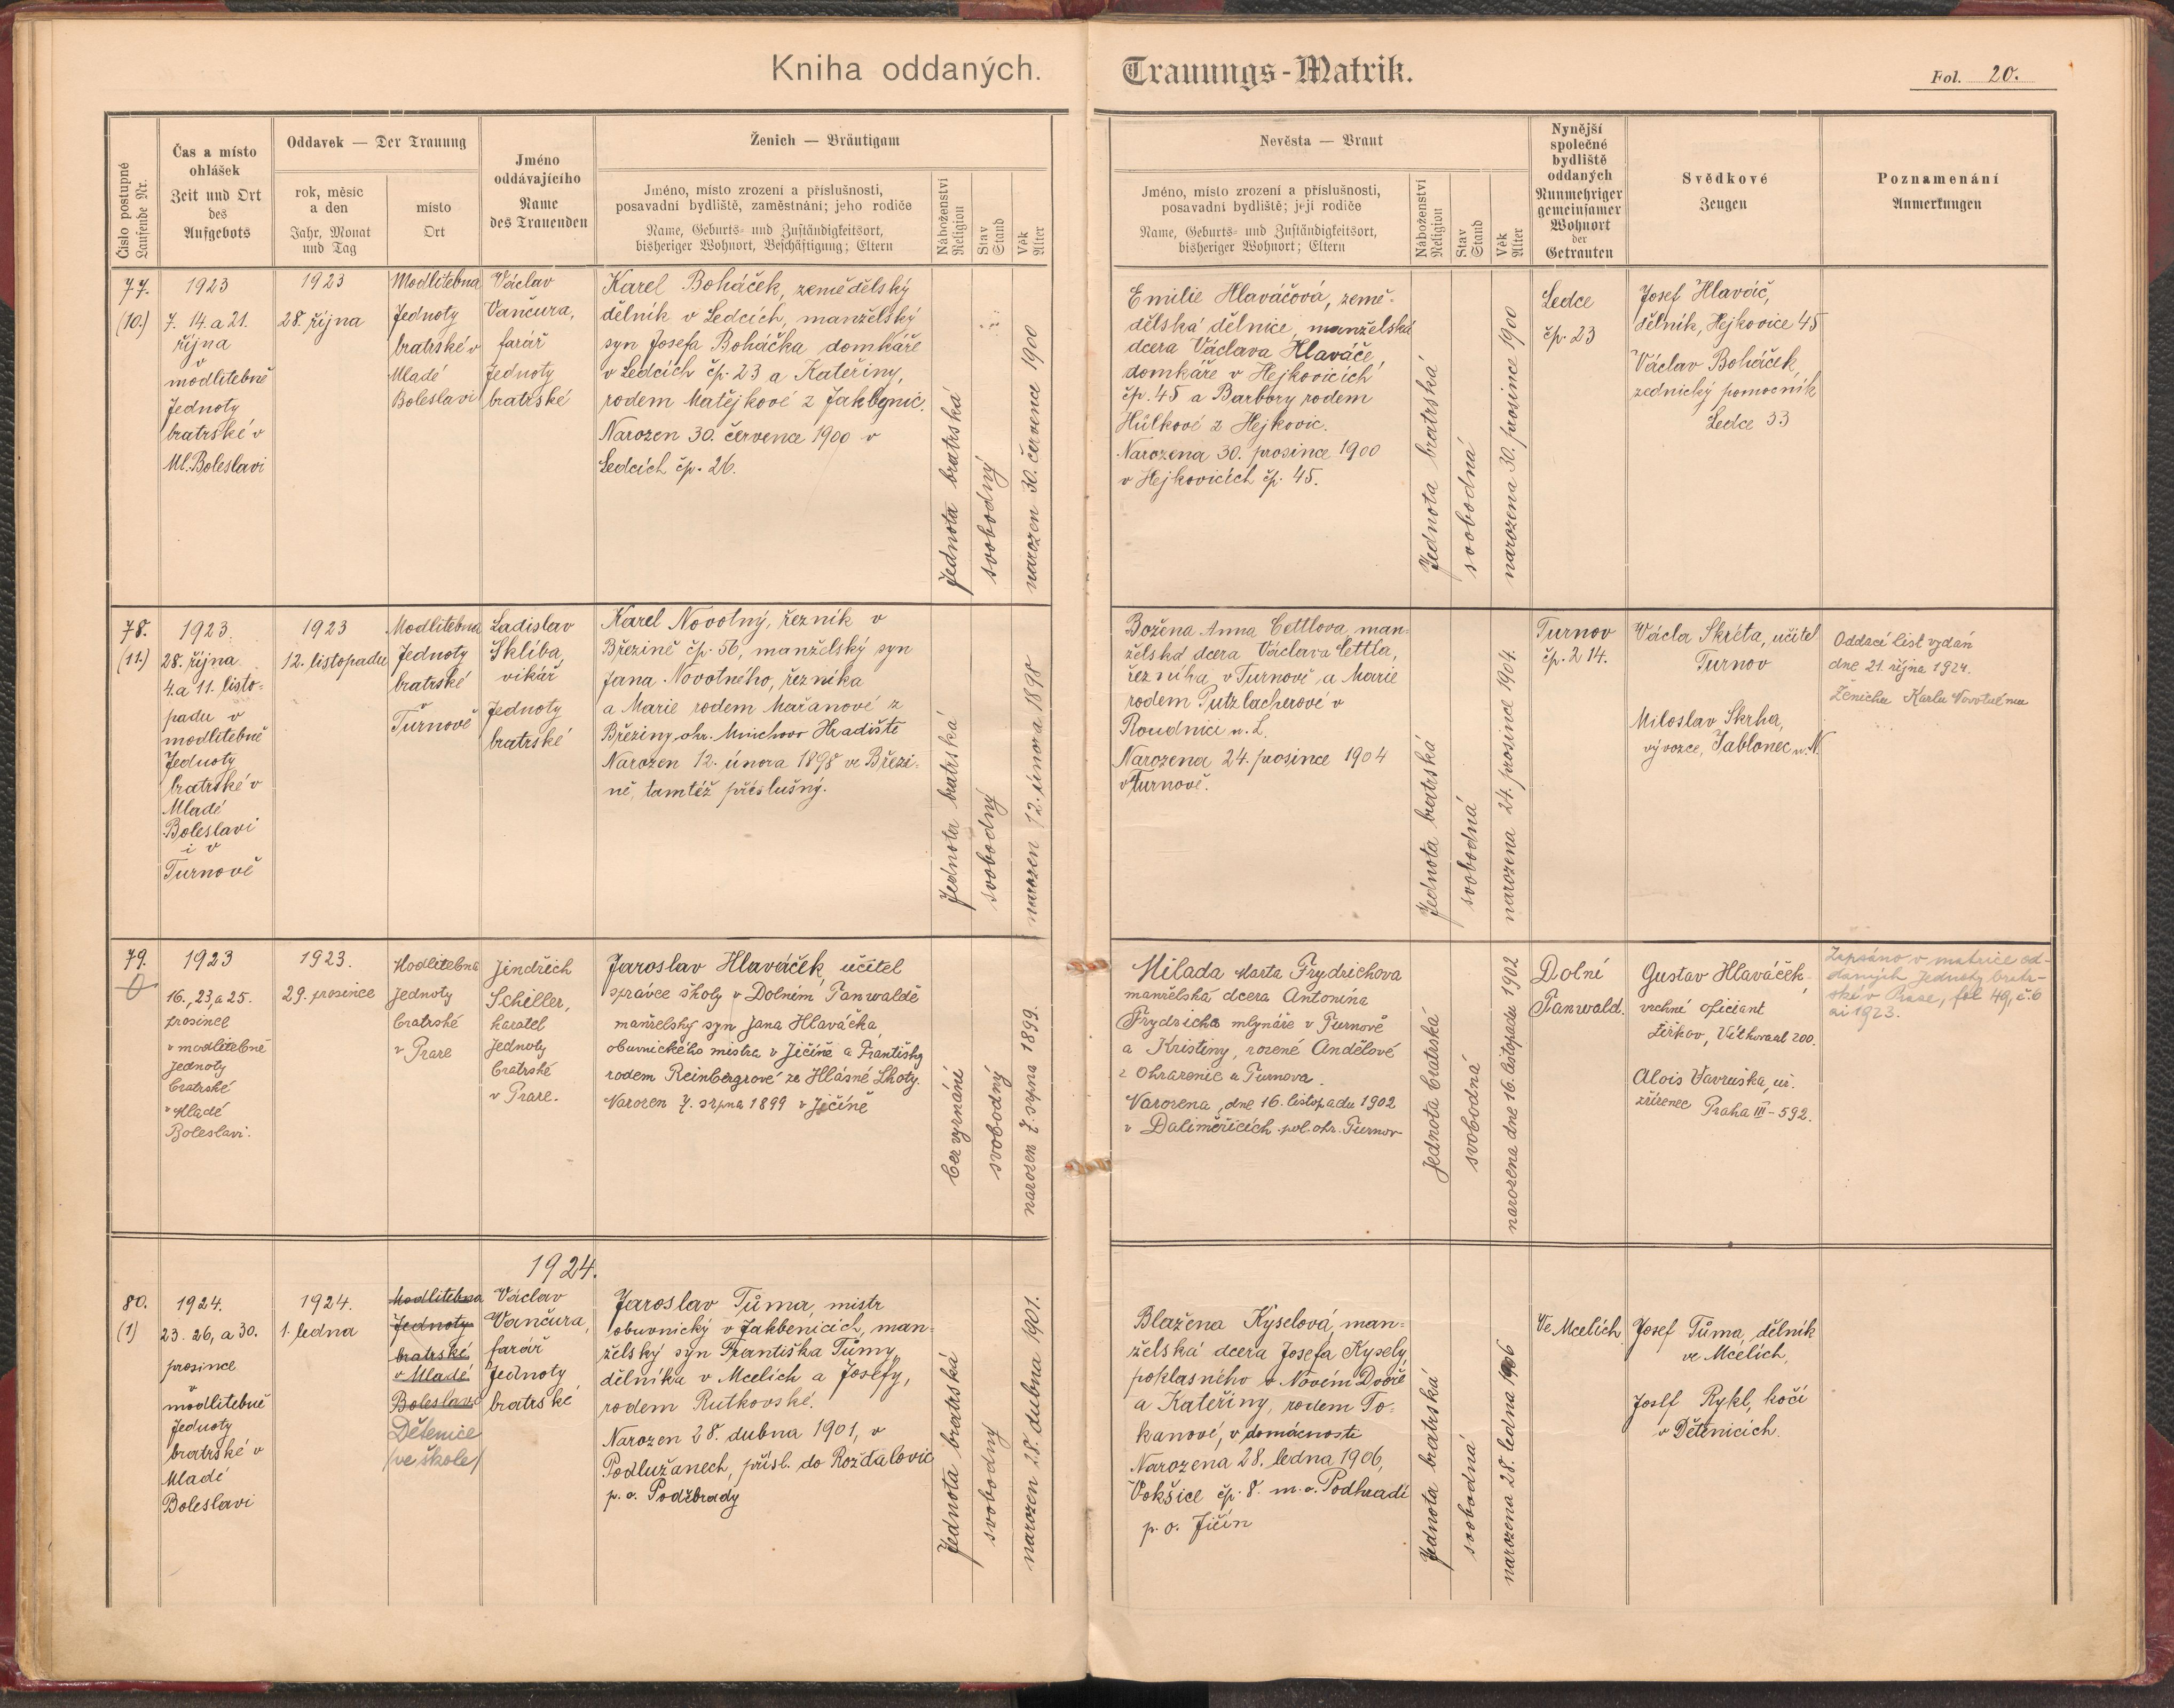 Kniha oddaných.
Trauungs-Matrik.
Fol. 20.
Číslo postupné
Laufende Nr.
Čas a místo
ohlášek
Zeit und Ort
des
Aufgebots
Oddavek — Der Trauung
rok, měsíc
a den
Jahr, Monat
und Tag
místo
Ort
Jméno
oddávajícího
Name
des Trauenden
Ženich — Bräutigam
Jméno, místo zrození a příslušnosti,
posavadní bydliště, zaměstnání; jeho rodiče
Name, Geburts- und Zuständigkeitsort,
bisheriger Wohnort, Beschäftigung; Eltern
Náboženství
Religion
Stav
Stand
Věk
Alter
Nevěsta — Braut
Jméno, místo zrození a příslušnosti,
posavadní bydliště; její rodiče
Name, Geburts- und Zuständigkeitsort,
bisheriger Wohnort; Eltern
Náboženství
Religion
Stav
Stand
Věk
Alter
Nynější
společné
bydliště
oddaných
Nunmehriger
gemeinsamer
Wohnort
der
Getrauten
Svědkové
Zeugen
Poznamenání
Anmerkungen
77.
(10.)
1923
7. 14. a 21.
října
v
modlitebně
Jednoty
bratrské v
Ml. Boleslavi
1923
28. října
Modlitebna
Jednoty
bratrské v
Mladé
Boleslavi
Václav
Vančura,
farář
Jednoty
bratrské
Karel Boháček, zemědělský
dělník v Ledcích, manželský
syn Josefa Boháčka domkáře
v Ledcích čp. 23 a Kateřiny,
rodem Matějkové z Jakbenic.
Narozen 30. července 1900 v
Ledcích čp. 26.
Jednota bratrská
svobodný
narozen 30. července 1900
Emilie Hlaváčová, země-
dělská dělnice, manželská
dcera Václava Hlaváče,
domkáře v Hejkovicích
čp. 45 a Barbory rodem
Hůlkové z Hejkovic.
Narozena 30. prosince 1900
v Hejkovicích čp. 45.
Jednota bratrská
svobodná
narozena 30. prosince 1900
Ledce
čp. 23
Josef Hlaváč,
dělník, Hejkovice 45
Václav Boháček,
zednický pomocník
Ledce 33
78.
(11.)
1923.
28. října
4. a 11. listo-
padu v
modlitebně
Jednoty
bratrské v
Mladé
Boleslavi
i v
Turnově
1923
12. listopadu
Modlitebna
Jednoty
bratrské
v
Turnově
Ladislav
Sklíba,
vikář
Jednoty
bratrské
Karel Novotný, řezník v
Březině čp. 56, manželský syn
Jana Novotného, řezníka
a Marie rodem Mařanové z
Březiny, ohr. Mnichovo Hradiště
Narozen 12. února 1898 ve Březi-
ně, tamtéž příslušný.
Jednota bratrská
svobodný
narozen 12. února 1898
Božena Anna Cettlova, man-
želská dcera Václava Cettla,
řezníka v Turnově a Marie
rodem Putzlacherové v
Roudnici n. L.
Narozena 24. prosince 1904
v Turnově.
Jednota bratrská
svobodná
narozena 24. prosince 1904.
Turnov
čp. 214.
Václa Skréta, učitel
Turnov
Miloslav Skrha,
vývozce, Jablonec n. N.
Oddací list vydán
dne 21. října 1924.
Ženichu Karlu Novotnému
79.
1923
16., 23. a 25.
prosince
v modlitebně
Jednoty
bratrské
v Mladé
Boleslavi.
1923.
29. prosince
Modlitebna
Jednoty
bratrské
v Praze
Jindřich
Schiller,
kazatel
Jednoty
bratrské
v Praze.
Jaroslav Hlaváček, učitel
správce školy v Dolním Tanwaldě
manželský syn Jana Hlaváčka,
obuvnického mistra v Jičíně a Františky
rodem Reinbergrové ze Hlásné Lhoty.
Narozen 7. srpna 1899 v Jičíně
bez vyznání
svobodný
narozen 7. srpna 1899.
Milada Marta Frydrichova
manželská dcera Antonína
Frydricha mlynáře v Turnově
a Kristiny, rozené Andělové
z Ohrazenic u Turnova.
Narozena, dne 16. listopadu 1902
v Daliměřicích pol. ohr. Turnov
Jednota bratrská
svobodná
narozena dne 16. listopadu 1902
Dolní
Tanwald.
Gustav Hlaváček,
vrchní oficiant
Žižkov, Vítkovaul 200.
Alois Vavruška, uř.
zřízenec Praha III – 592.
Zapsáno v matrice od-
daných Jednoty bratr-
ské v Praze, fol 49, č. 6
ai 1923.
1924.
80.
(1)
1924.
23. 26. a 30.
prosince
v
modlitebně
Jednoty
bratrské v
Mladé
Boleslavi
1924.
1. ledna
Modlitebna
Jednoty
bratrské
v Mladé
Boleslavi
Dětenice
/ve škole/
Václav
Vančura,
farář
Jednoty
bratrské
Jaroslav Tůma, mistr
obuvnický v Jakbenicích, man-
želský syn Františka Tůmy,
dělníka v Mcelích a Josefy,
rodem Rutkovské.
Narozen 28. dubna 1901, v
Podlužanech, přísl. do Rožďalovic
p. o. Poděbrady
Jednota bratrská
svobodný
narozen 28. dubna 1901.
Blažena Kyselová, man-
želská dcera Josefa Kyselý
poklasného v Novém Dvoře
a Kateřiny, rodem To-
kanové, v domácnosti
Narozena 28. ledna 1906,
Vokšice čp. 8. m. o. Podhradí
p. o. Jičín
Jednota bratrská
svobodná
narozena 28. ledna 1906
Ve Mcelích
Josef Tůma, dělník
ve Mcelích,
Josef Rykl, kočí
v Dětenicích.